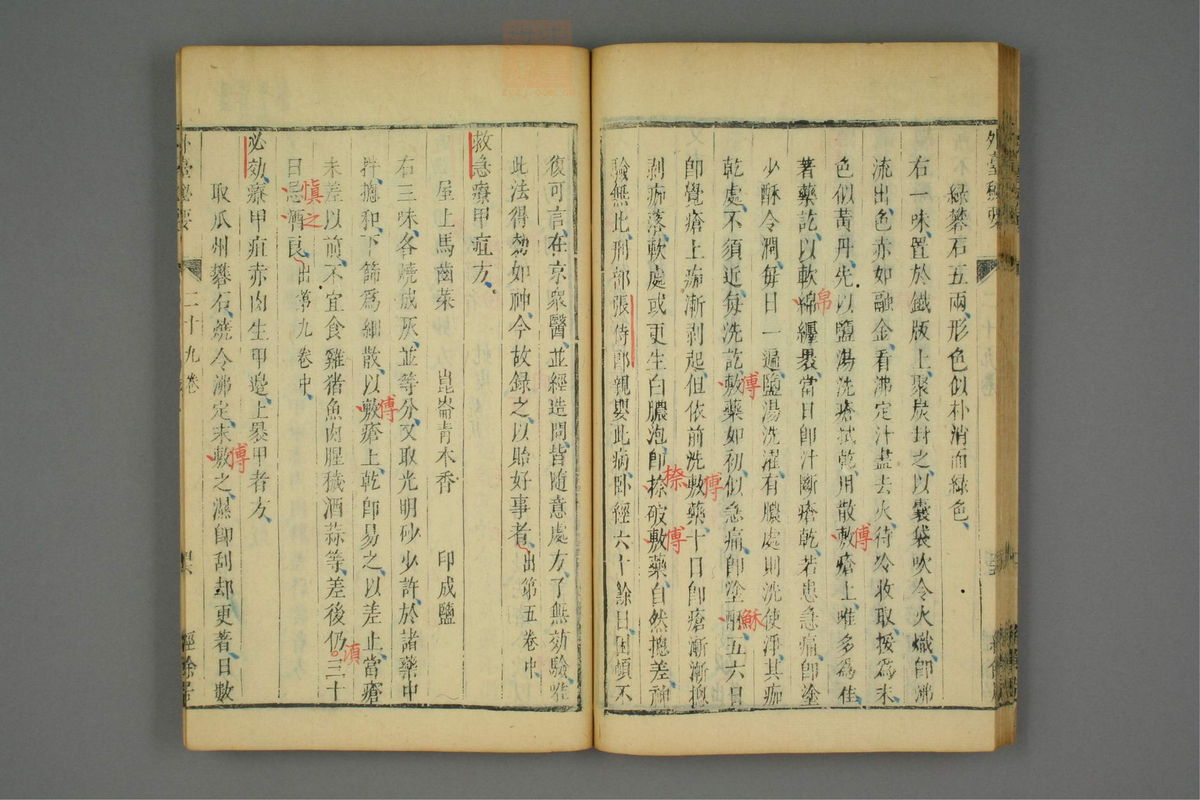 外臺秘要
綠礬石五兩、形色似朴消而綠色、
右一味、置於鐵版上、聚炭封之、以囊袋吹令火熾、即沸
流出、色赤如融金、看沸定汁盡去火、待冷收取、挼為末
色似黃丹、先以鹽湯洗瘡拭乾、用散敷瘡上、唯多為佳、
傅
著藥訖、以軟綿纏裹、當日即汁斷瘡乾、若患急痛即塗
帛
少酥令潤、每日一遍鹽湯洗濯、有膿處則洗使淨、其痂
乾處、不須近、每洗訖、敷藥如初、似急痛即塗酥、五六日
傅
酥
即覺瘡上痂漸剥起、但依前洗敷藥、十日即瘡漸漸揔
傅
剥痂落、軟處或更生白膿泡、即捺破敷藥、自然揔差、神
捺
傅
驗無此、刑部張侍郎親嬰此病、臥經六十餘日、困頓不
復可言、在京衆醫、並經造問、皆隨意處方、了無効驗、唯
此法得効如神、今故録之、以貽好事者、出第五卷中、
救急療甲疽方、
屋上馬齒菜 崑崙青木香 印成鹽
右三味、各燒成灰、並等分、又取光明砂少許、於諸藥中
拌揔和、下篩為細散、以敷瘡上、乾即易之、以差止、當瘡
傅
未差以前、不宜食雞猪魚肉腥穢酒蒜等、差後仍三十
須
日忌濟良、出第九卷中、
愼之
必効、療甲疽赤肉生甲邊、上裹甲者方、
取瓜州礬石、燒令沸定、末敷之、濕即刮却更著、日數
傅
外臺秘要
二十九卷